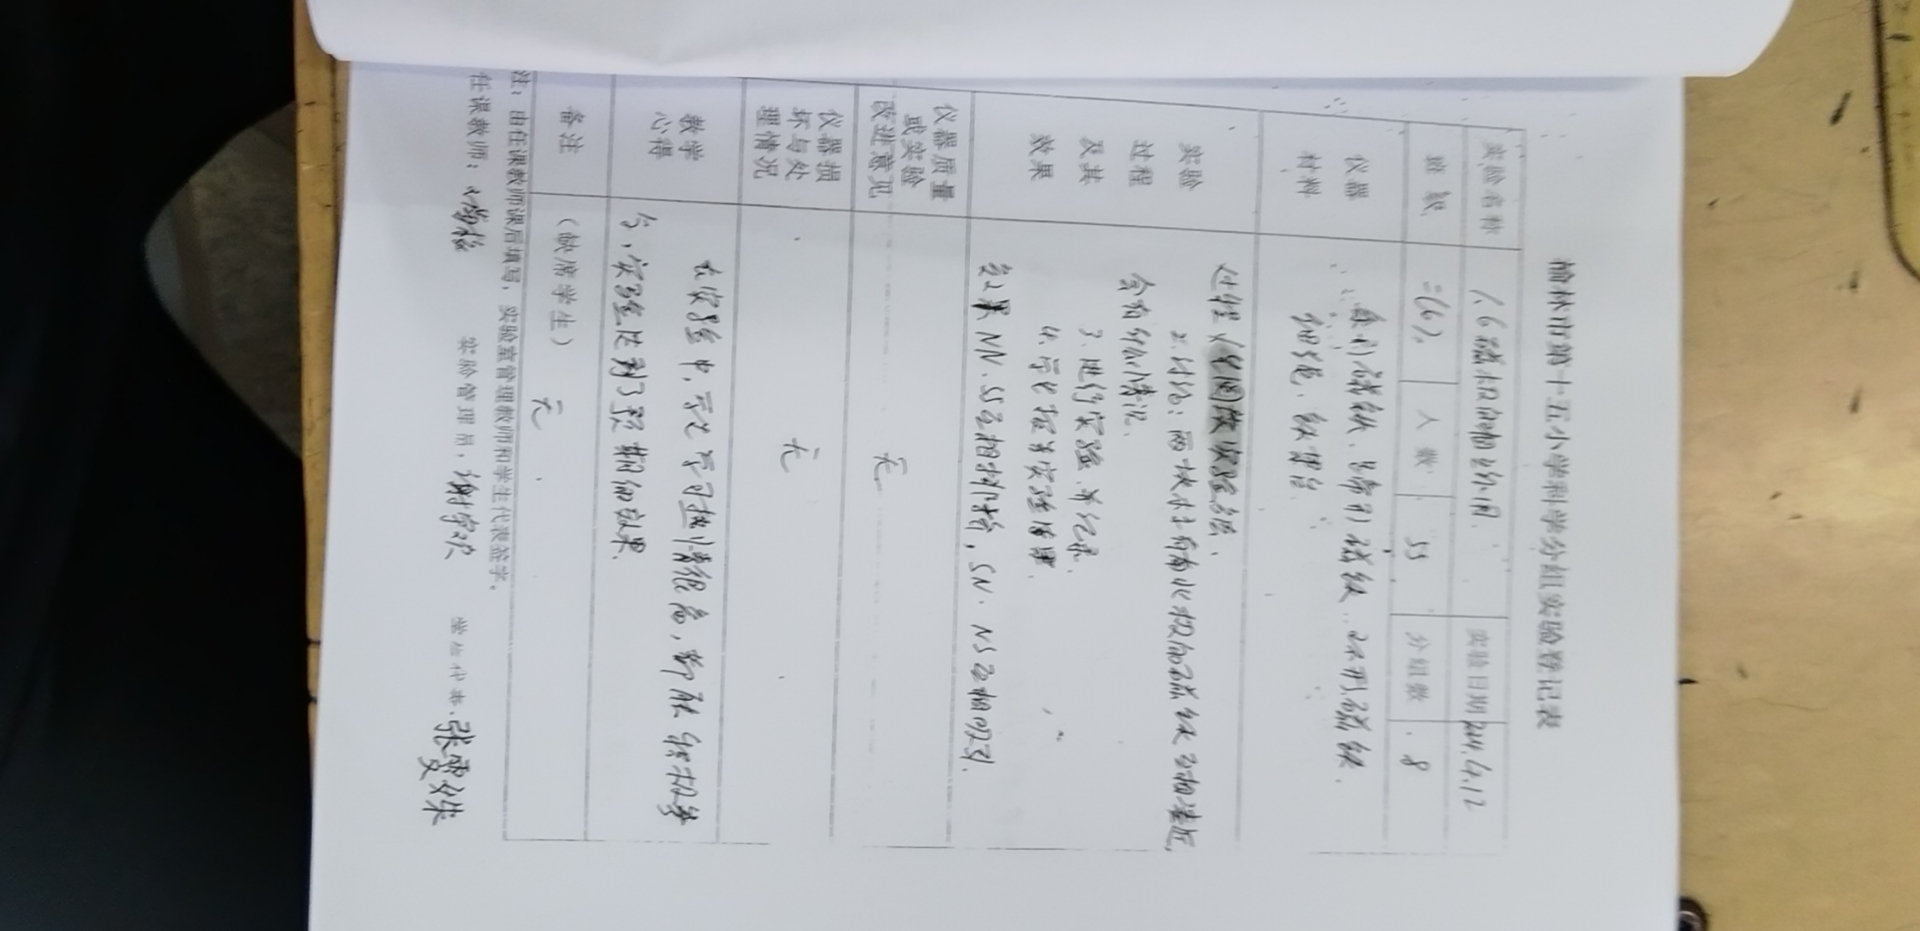 榆林市第十五小学科学分组实验登记表
实验名称 1.6磁极间的相互作用 实验日期 4.12
班级 二(6) 人数 55 分组数 8
仪器
材料
条形磁铁、蹄形磁铁、环形磁铁
细绳、铁架台
实验
过程
及其
效果
过程
2.讨论：两块标有南北极的磁铁互相靠近，
会有什么情况.
3.进行实验.并记录.
4.实验结果.
效果 NN.SS互相排斥，SN.NS互相吸引.
仪器质量
或实验
改进意见
无
仪器损
坏与处
理情况
无
教学
心得
在实验中，学习热情很高，都能积极参
与，实验达到了预期的效果.
备注 (缺席学生) 无
注：由任课教师课后填写，实验室管理教师和学生代表签字。
任课教师： 实验管理员： 学生代表：